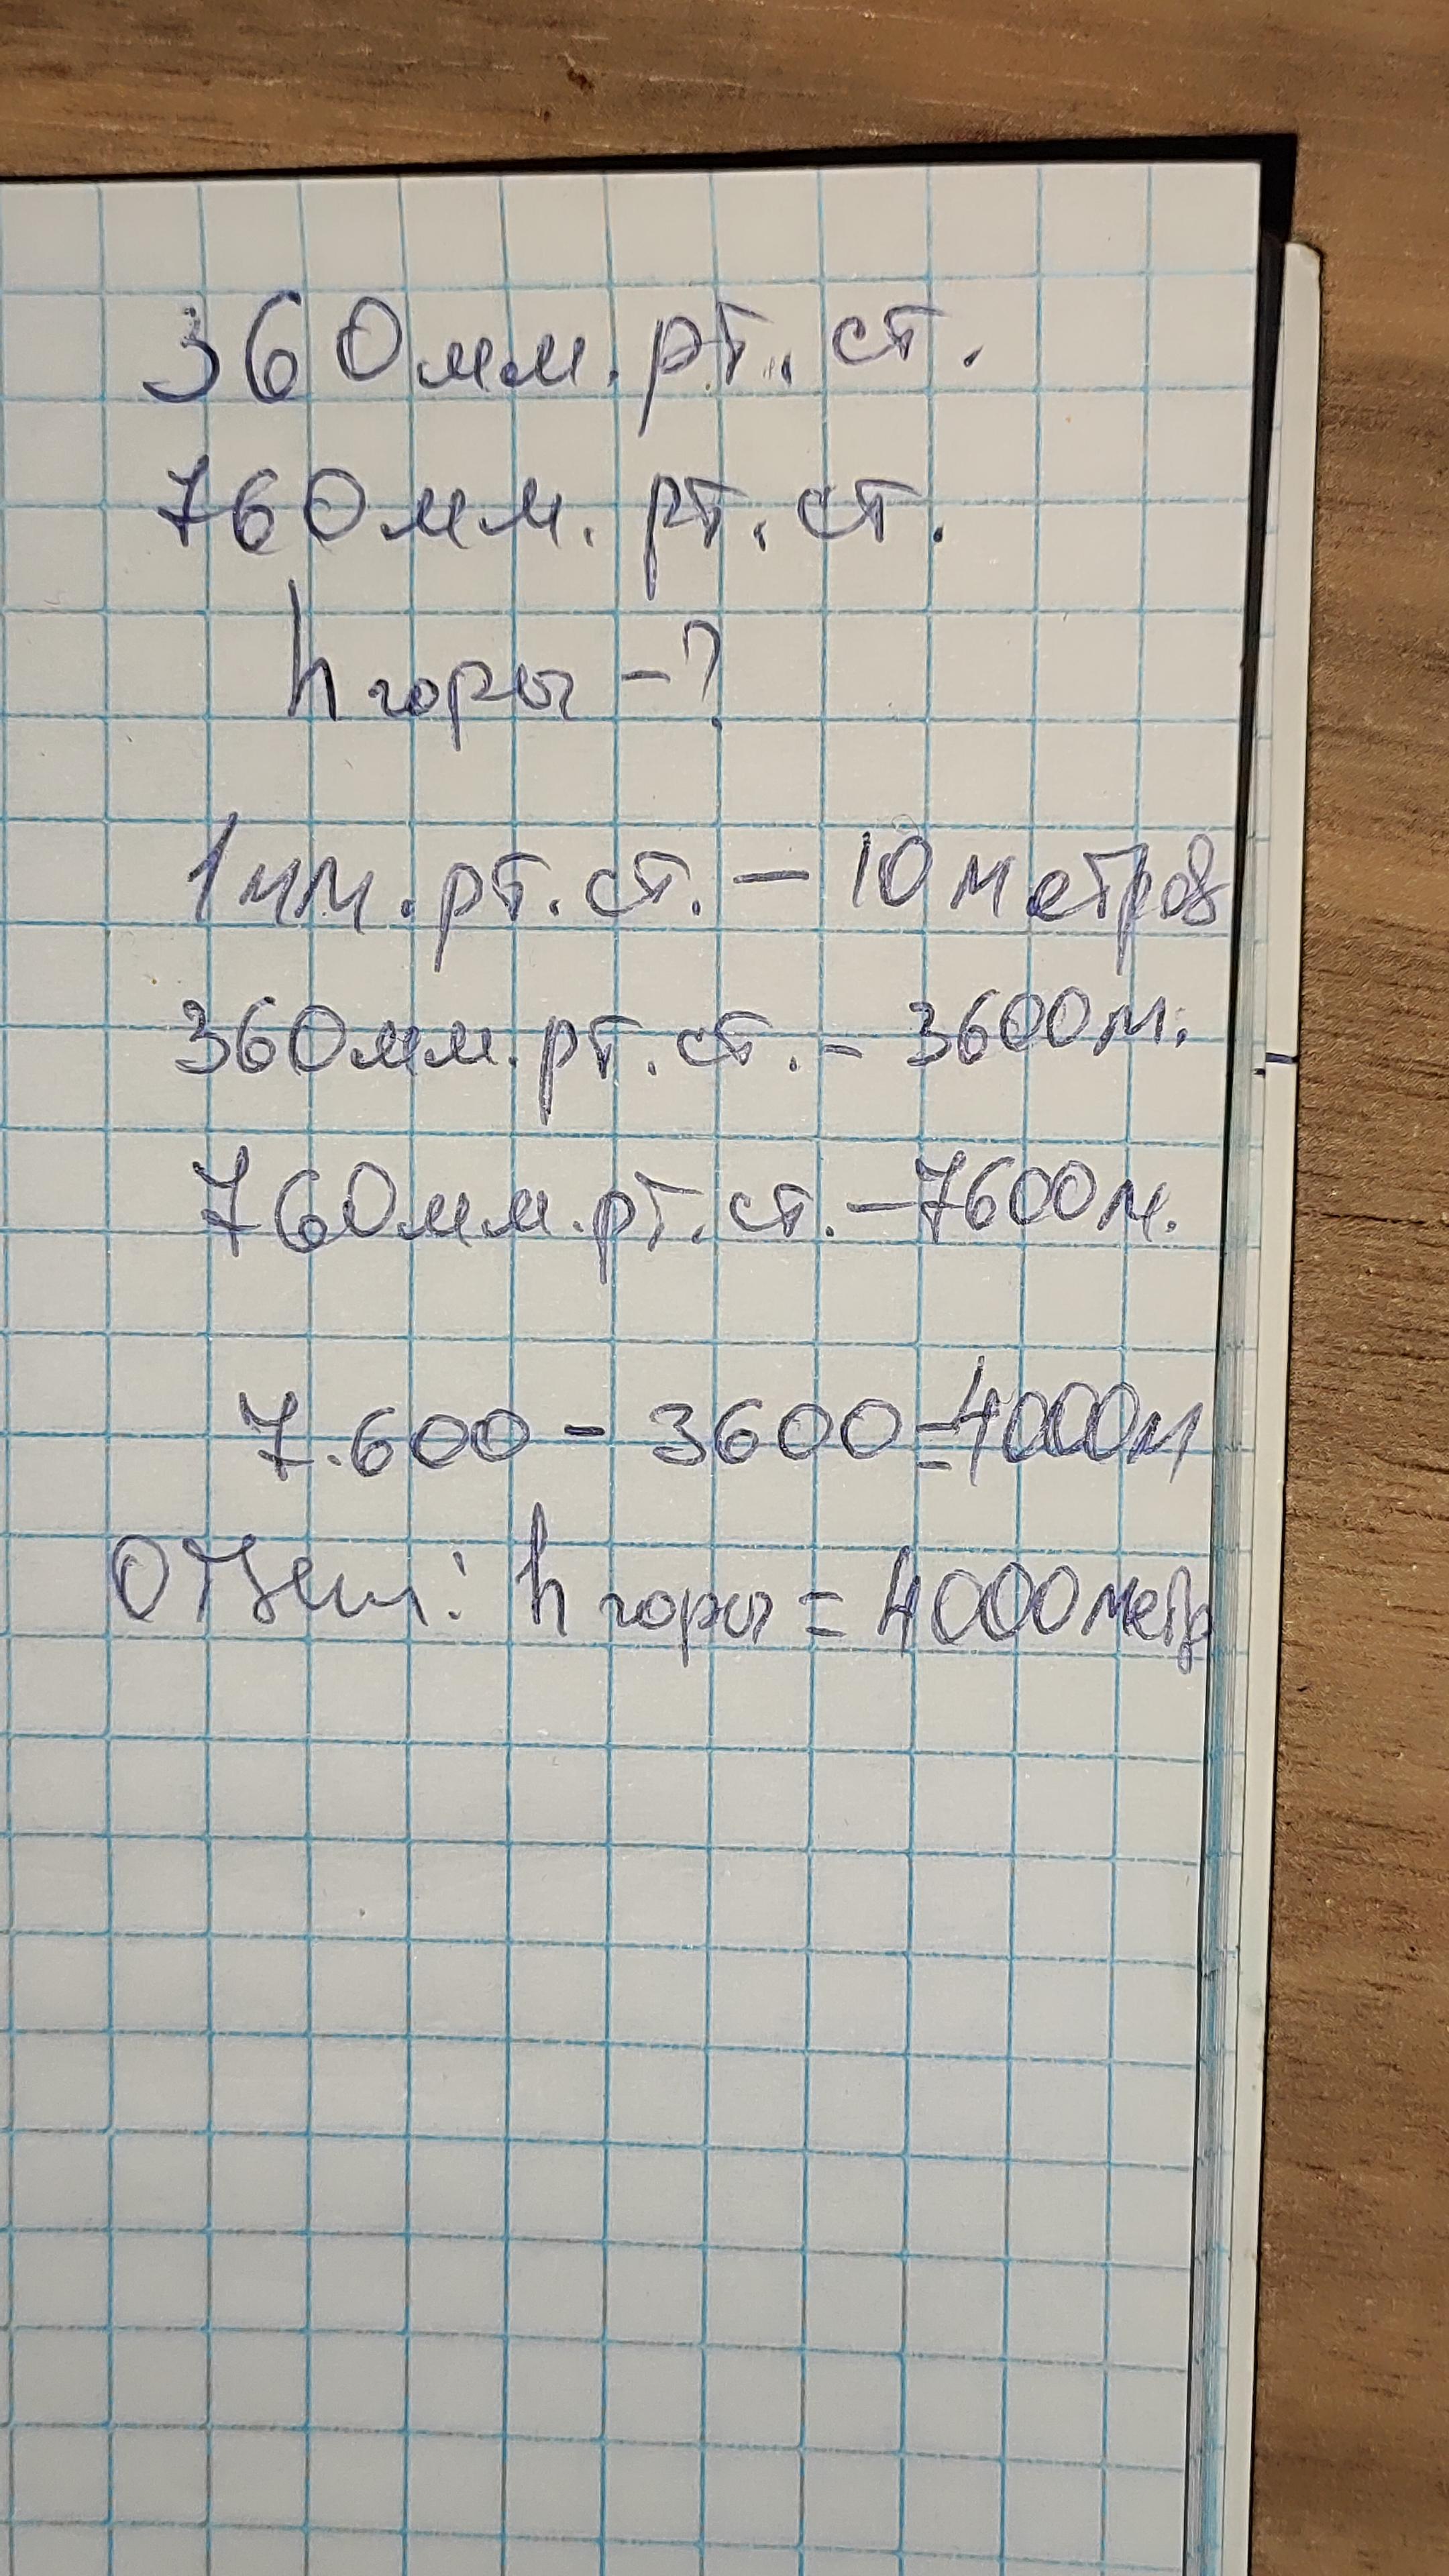 360мм.рт.ст.
760мм.рт.ст.
h горы -?
1мм.рт.ст. - 10 метров
360мм.рт.ст. - 3600м.
760мм.рт.ст. - 7600м.
7.600 - 3600 = 4000м
Ответ: h горы = 4000метр